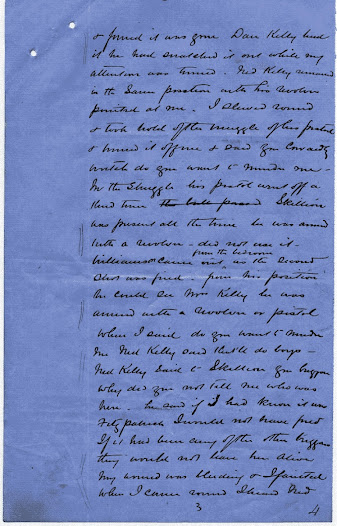 & found it was gone Dan Kelly had
it he had snatched it out while my
attention was turned. Ned Kelly remained
in the same position with his revolver
pointed at me. I slewed round
& took hold of the muzzle of his pistol
& turned it off me & said you cowardly
wretch do you want to murder me -
In the struggle his pistol went off a
third time Skillion
was present all the time he was armed
with a revolver - did not use it -
Williamson came out from the bedroom as the second
shot was fired - from his position
he could see Mrs Kelly he was
armed with a revolver or pistol
When I said do you want to murder
me Ned Kelly said that'll do boys -
Ned Kelly said to Skillion you bugger
why did you not tell me who was
here. he said if I had known it was
Fitzpatrick I would not have fired
If it had been any of the other buggers
they would not leave here alive
My wound was bleeding & I fainted
When I came round I heard Ned
3
4